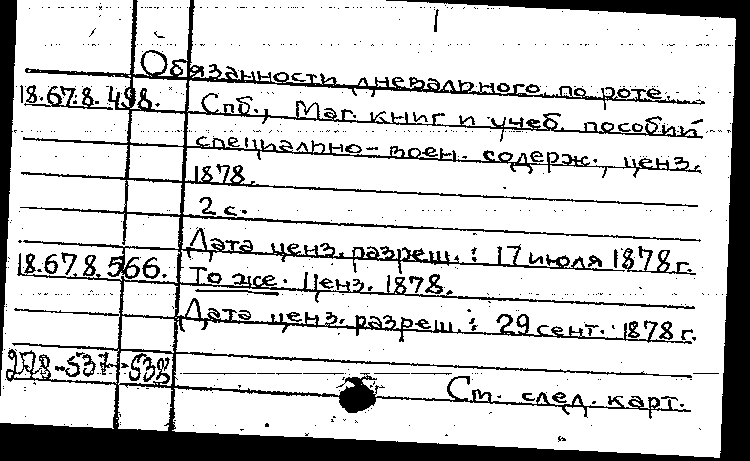 Обязанности дневального по роте.
18.67.8.498. Спб., Маг. книг и учеб. пособий
специально-воен. содерж., ценз.
1878.
2 с.
Дата ценз. разреш.: 17 июля 1878 г.
18.67.8.566. То же. Ценз. 1878.
Дата ценз. разреш.: 29 сент. 1878 г.
278-537-538
См. след. карт.